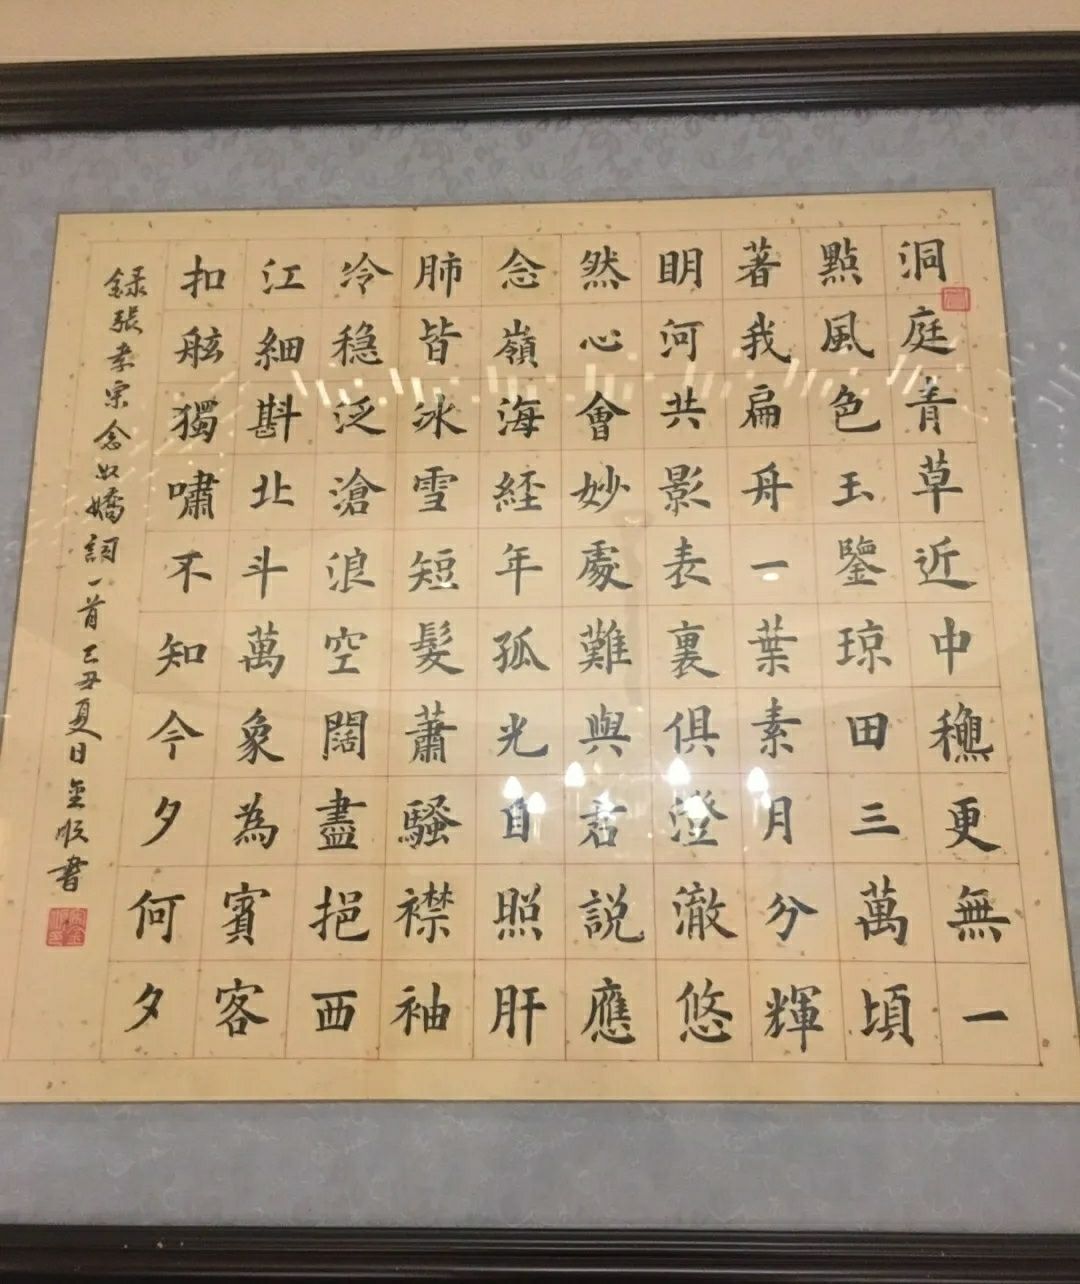 洞庭青草近中穐更無一
點風色玉鑒琼田三萬頃
著我扁舟一葉素月分輝
明河共影表裏俱澄澈悠
然心會妙處難與君説應
念嶺海経年孤光自照肝
肺皆冰雪短髮蕭騷襟袖
冷穏泛滄浪空闊盡挹西
江細斟北斗萬象為賓客
扣舷獨嘯不知今夕何夕
録張孝宗念奴嬌詞一首己丑夏日金順書